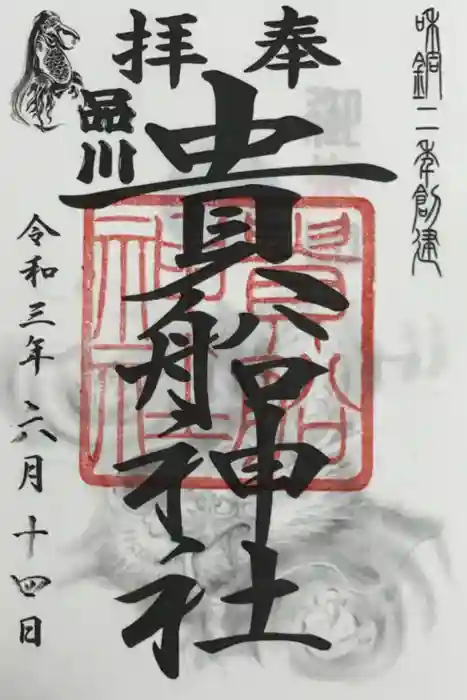 和銅二年創建
奉拝
品川
貴船神社
貴船神社
令和三年六月十四日